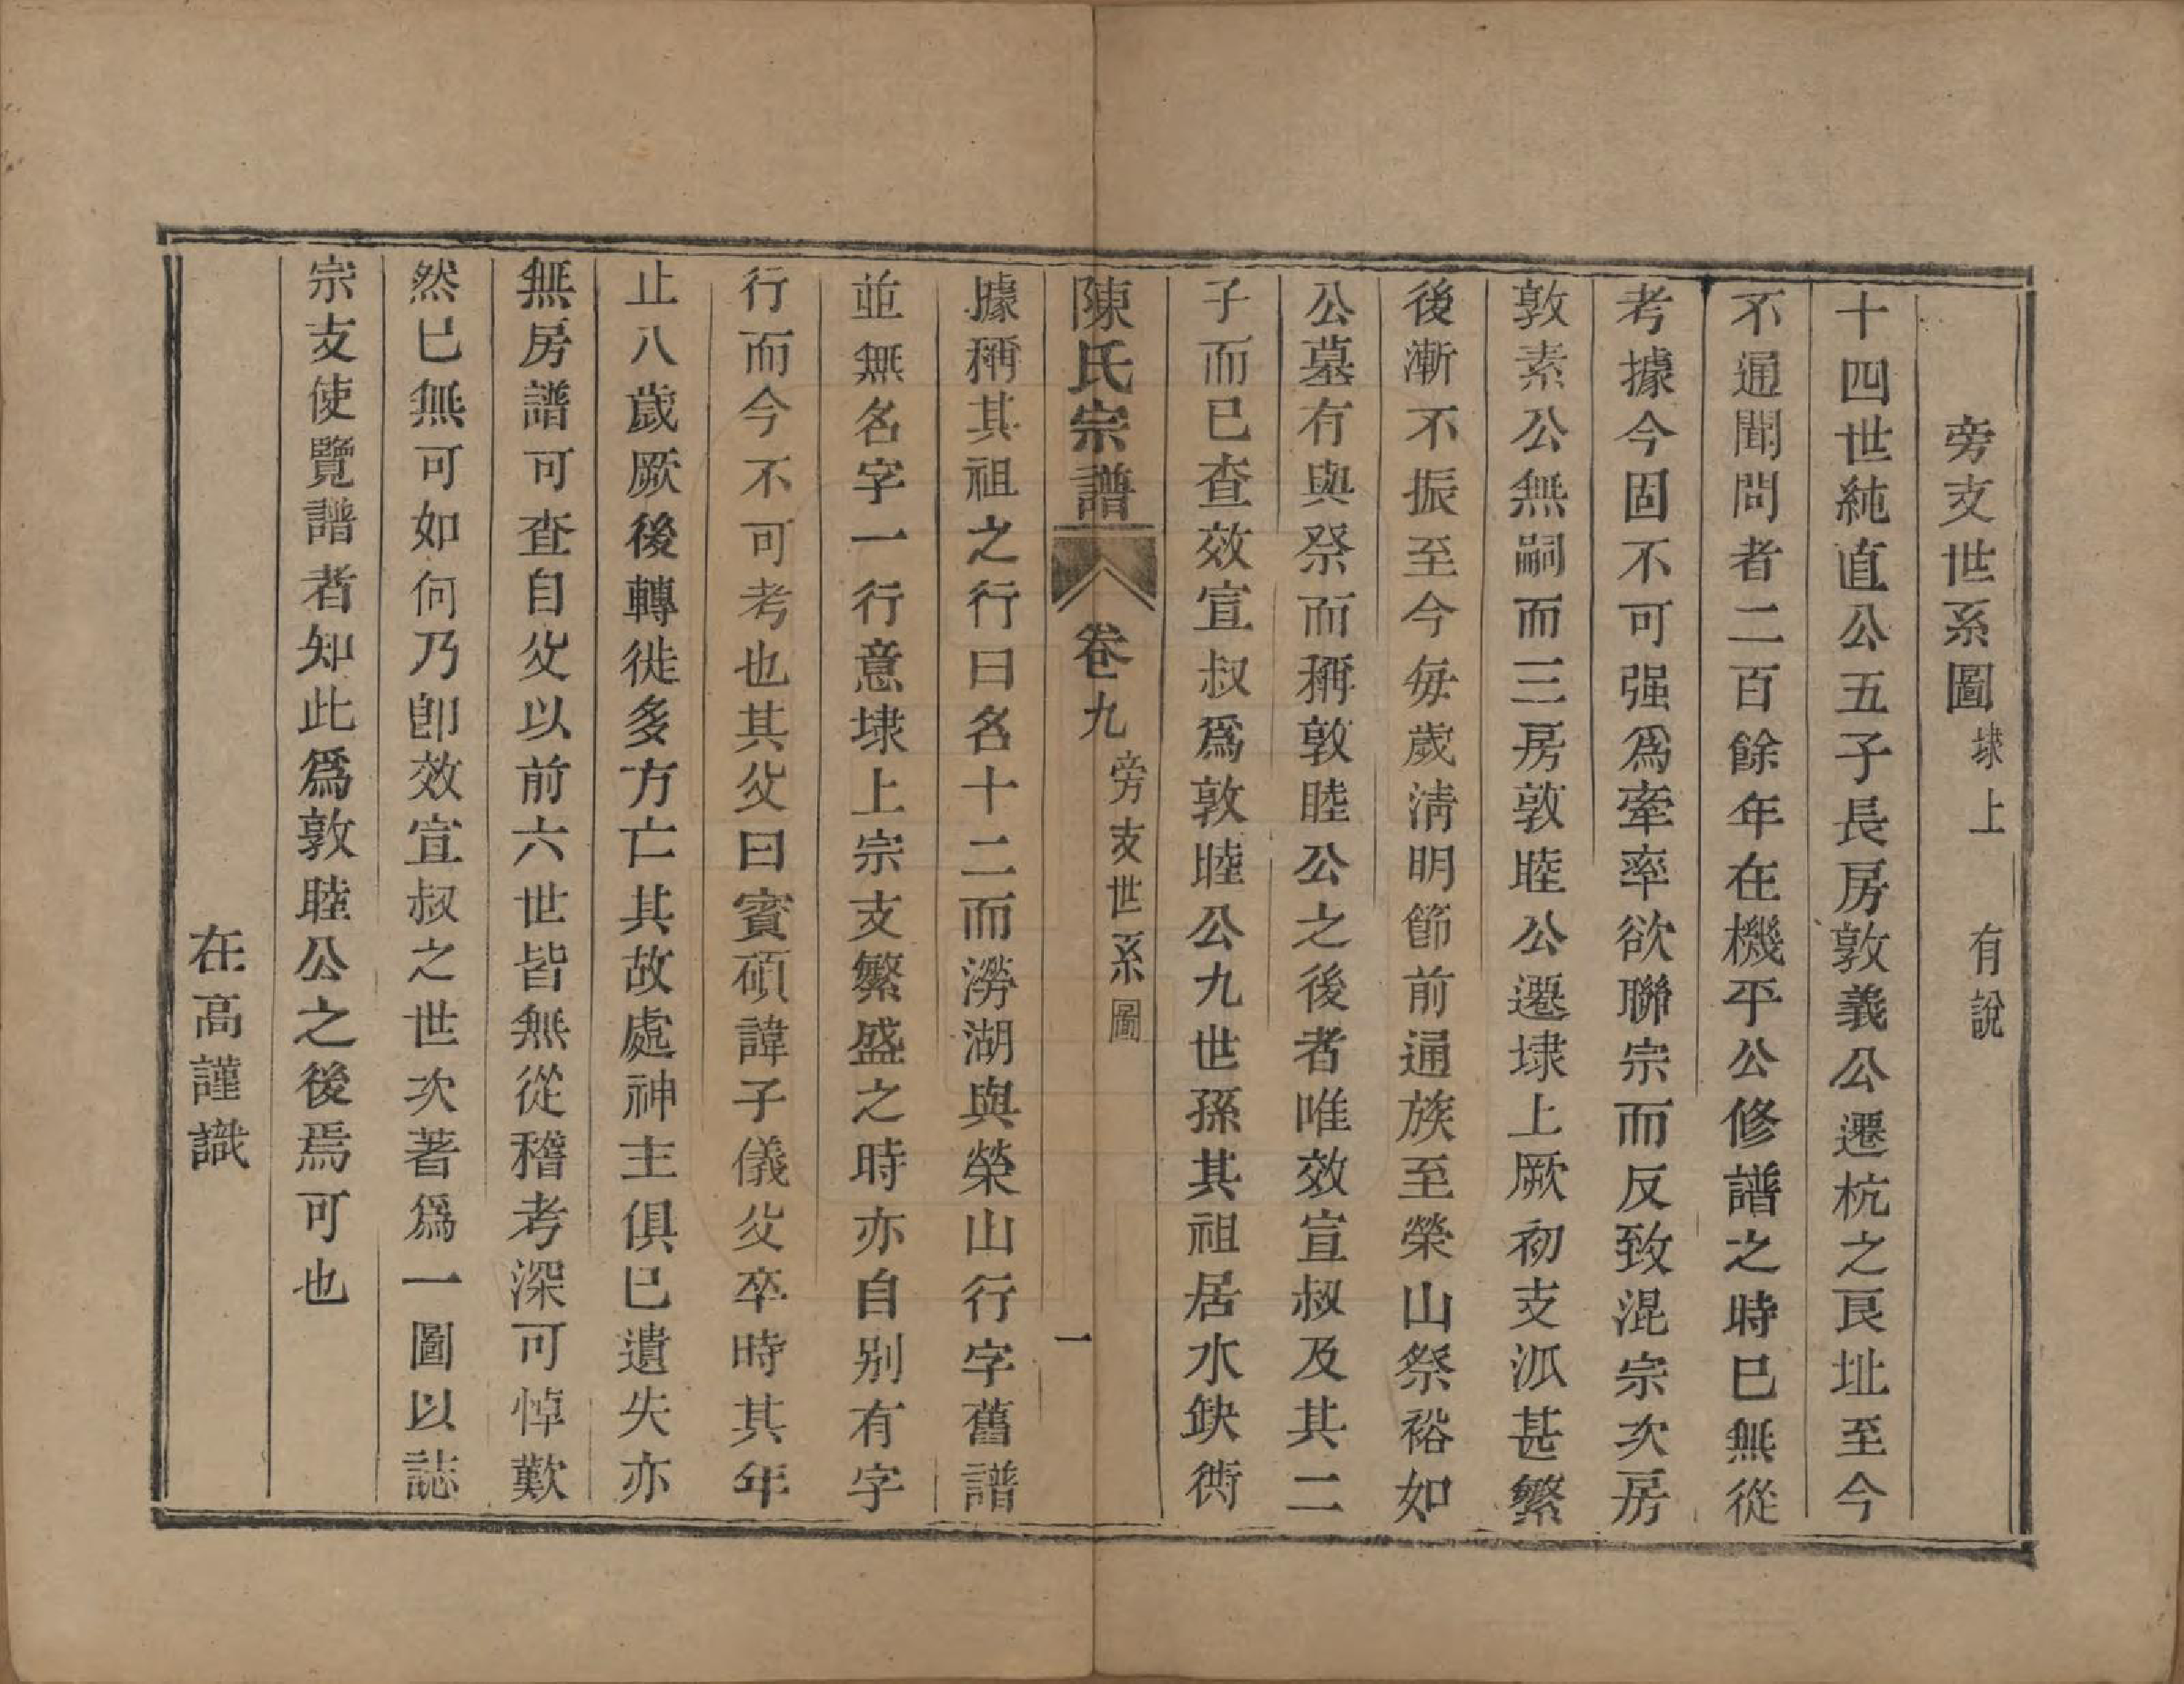 旁支世系圖埭上 有說
十四世純直公五子長房敦義公遷杭之艮址至今
不通聞問者二百餘年在機平公修譜之時巳無從
考據今固不可强爲牽率欲聯宗而反致混宗次房
敦素公無嗣而三房敦睦公遷埭上厥初支派甚繁
後漸不振至今每歲淸明節前通族至榮山祭裕如
公墓有與祭而稱敦睦公之後者唯效宣叔及其二
子而已查效宣叔爲敦睦公九世孫其祖居水缺衖
陳氏宗譜 卷九 旁支世系圖 一
據稱其祖之行曰名十二而澇湖與榮山行字舊譜
並無名字一行意埭上宗支繁盛之時亦自别有字
行而今不可考也其父曰賓碩諱子儀父卒時其年
止八歲厥後轉徙多方亡其故處神主俱巳遺失亦
無房譜可查自父以前六世皆無從稽考深可悼歎
然巳無可如何乃卽效宣叔之世次著爲一圖以誌
宗支使覽譜者知此爲敦睦公之後焉可也
在高謹識